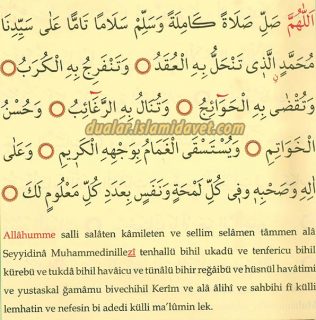 اَللّٰهُمَّ صَلِّ صَلَاةً كَامِلَةً وَسَلِّمْ سَلَامًا تَامًّا عَلٰى سَيِّدِنَا
مُحَمَّدٍ الَّذِي تَنْحَلُّ بِهِ الْعُقَدُ وَتَنْفَرِجُ بِهِ الْكُرَبُ
وَتُقْضٰى بِهِ الْحَوَٓائِجُ وَتُنَالُ بِهِ الرَّغَٓائِبُ وَحُسْنُ
dualar.islamidavet.com
الْخَوَاتِمِ وَيُسْتَسْقَى الْغَمَامُ بِوَجْهِهِ الْكَرِيمِ وَعَلٰى
اٰلِهِ وَصَحْبِهِ وَفِي كُلِّ لَمْحَةٍ وَنَفَسٍ بِعَدَدِ كُلِّ مَعْلُومٍ لَكَ
Allâhumme salli salâten kâmileten ve sellim selâmen tâmmen alâ
Seyyidinâ Muhammedinillezî tenhallu bihil ukadü ve tenfericu bihil
kürebü ve tukdâ bihil havâicu ve tünâlü bihir reğâibü ve hüsnül havâtimi
ve yustaskal ğamâmu bivechihil Kerîm ve alâ âlihî ve sahbihi fî külli
lemhatin ve nefesin bi adedi külli ma'lûmin lek.